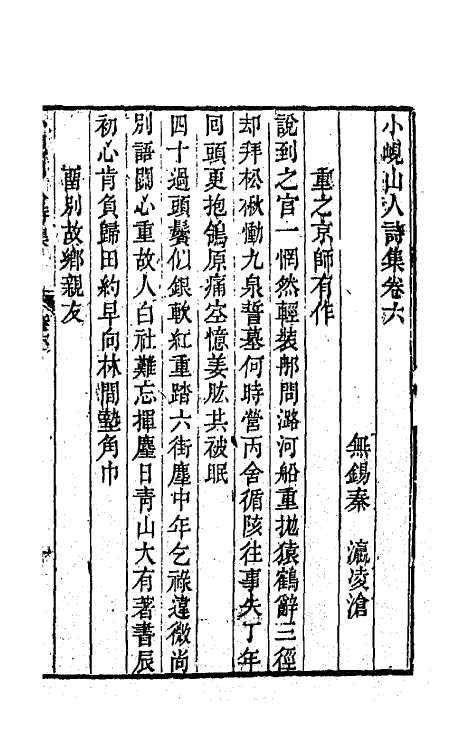 小峴山人詩集卷六
無錫秦　瀛凌滄
重之京師有作
說到之官一惘然輕裝郍問潞河船重拋猿鶴辭三徑
却拜松楸慟九泉誓墓何時營丙舍循陔往事失丁年
囘頭更抱鴒原痛空憶姜肱共被眠
四十過頭鬢似銀軟紅重踏六街塵中年乞祿違微尚
別語關心重故人白社難忘揮麈日靑山大有著書辰
初心肯負歸田約早向林間墊角巾
畱別故鄉親友